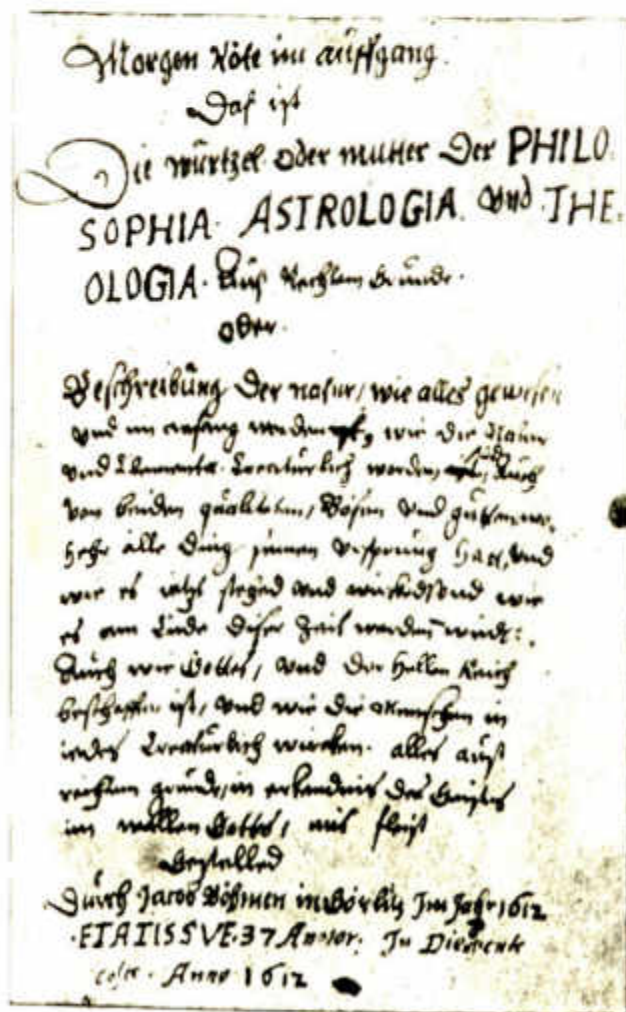 Morgen Röte im auffgang.
Das ist
Die wurtzel oder mutter Der PHILO.
SOPHIA. ASTROLOGIA. Und .THE.
OLOGIA. Auß Rechtem Grunde.
Oder.
Beschreibung Der natur, wie alles gewesen
und im anfang worden, wie Die Natur
und Elementa Creaturlich worden, Auch
von beiden qualiteten, Bösen Und gutten wo.
hehr alle Ding seinen Vrsprung Hatt, Und
wie es itzt stehed und wircked Und wie
es am Ende Diser Zeit werden wirdt.
Auch wie Gottes, und Der Hellen Reich
beschaffen ist, und wie Die Menschen in
iedes Creaturlich wircken. alles auß
rechtem grunde, in erkendnis Des Geistes
im wallen Gottes, mit fleiß
Gestelled
Durch Jacob Böhmen in Görlitz Im Jahr 1612
.ETATIS SVE. 37 Annor: In
Anno 1612